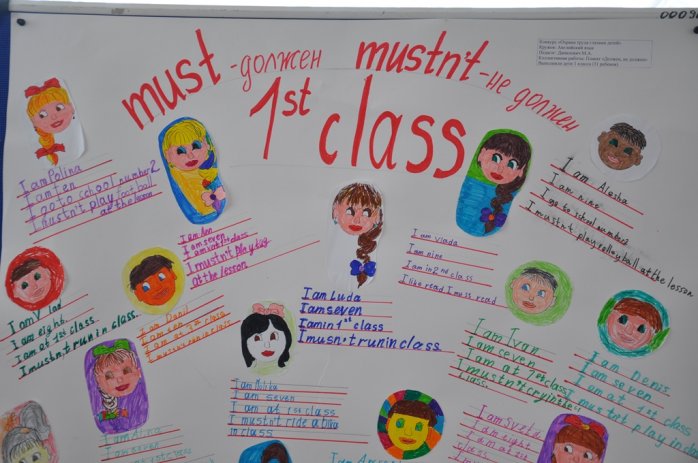 must -должен mustn't -не должен
1st class
Конкурс «Охрана труда глазами детей»
Кружок: Английский язык
I am Polina
I am ten
I go to school number 2
I mustn't play football
at the lesson
I am Ann
I am seven
I am in 1st class
I mustn't play tag
at the lesson
I am Luda
I am seven
I am in 1st class
I musn't run in class
I am vlada
I am nine
I am in 2nd class
I like read I mess read
I am Alesha
I am nine
I go to school number 2
I mustn't play volleyball at the lesson
I am Vlad
I am eight.
I am at 1st class.
I mustn't run in class.
I am Danil
I am at 1st class
I am Ivan
I am seven
I am at 1st class
I mustn't cry in the
class
I am Denis
I am seven
I am at 1st class
I mustn't play in
I am
I am seven
I am at 1st class
I mustn't ride a bike
in class
I am Sveta
I am eight
I am at 1st
I am
I am seven
I am